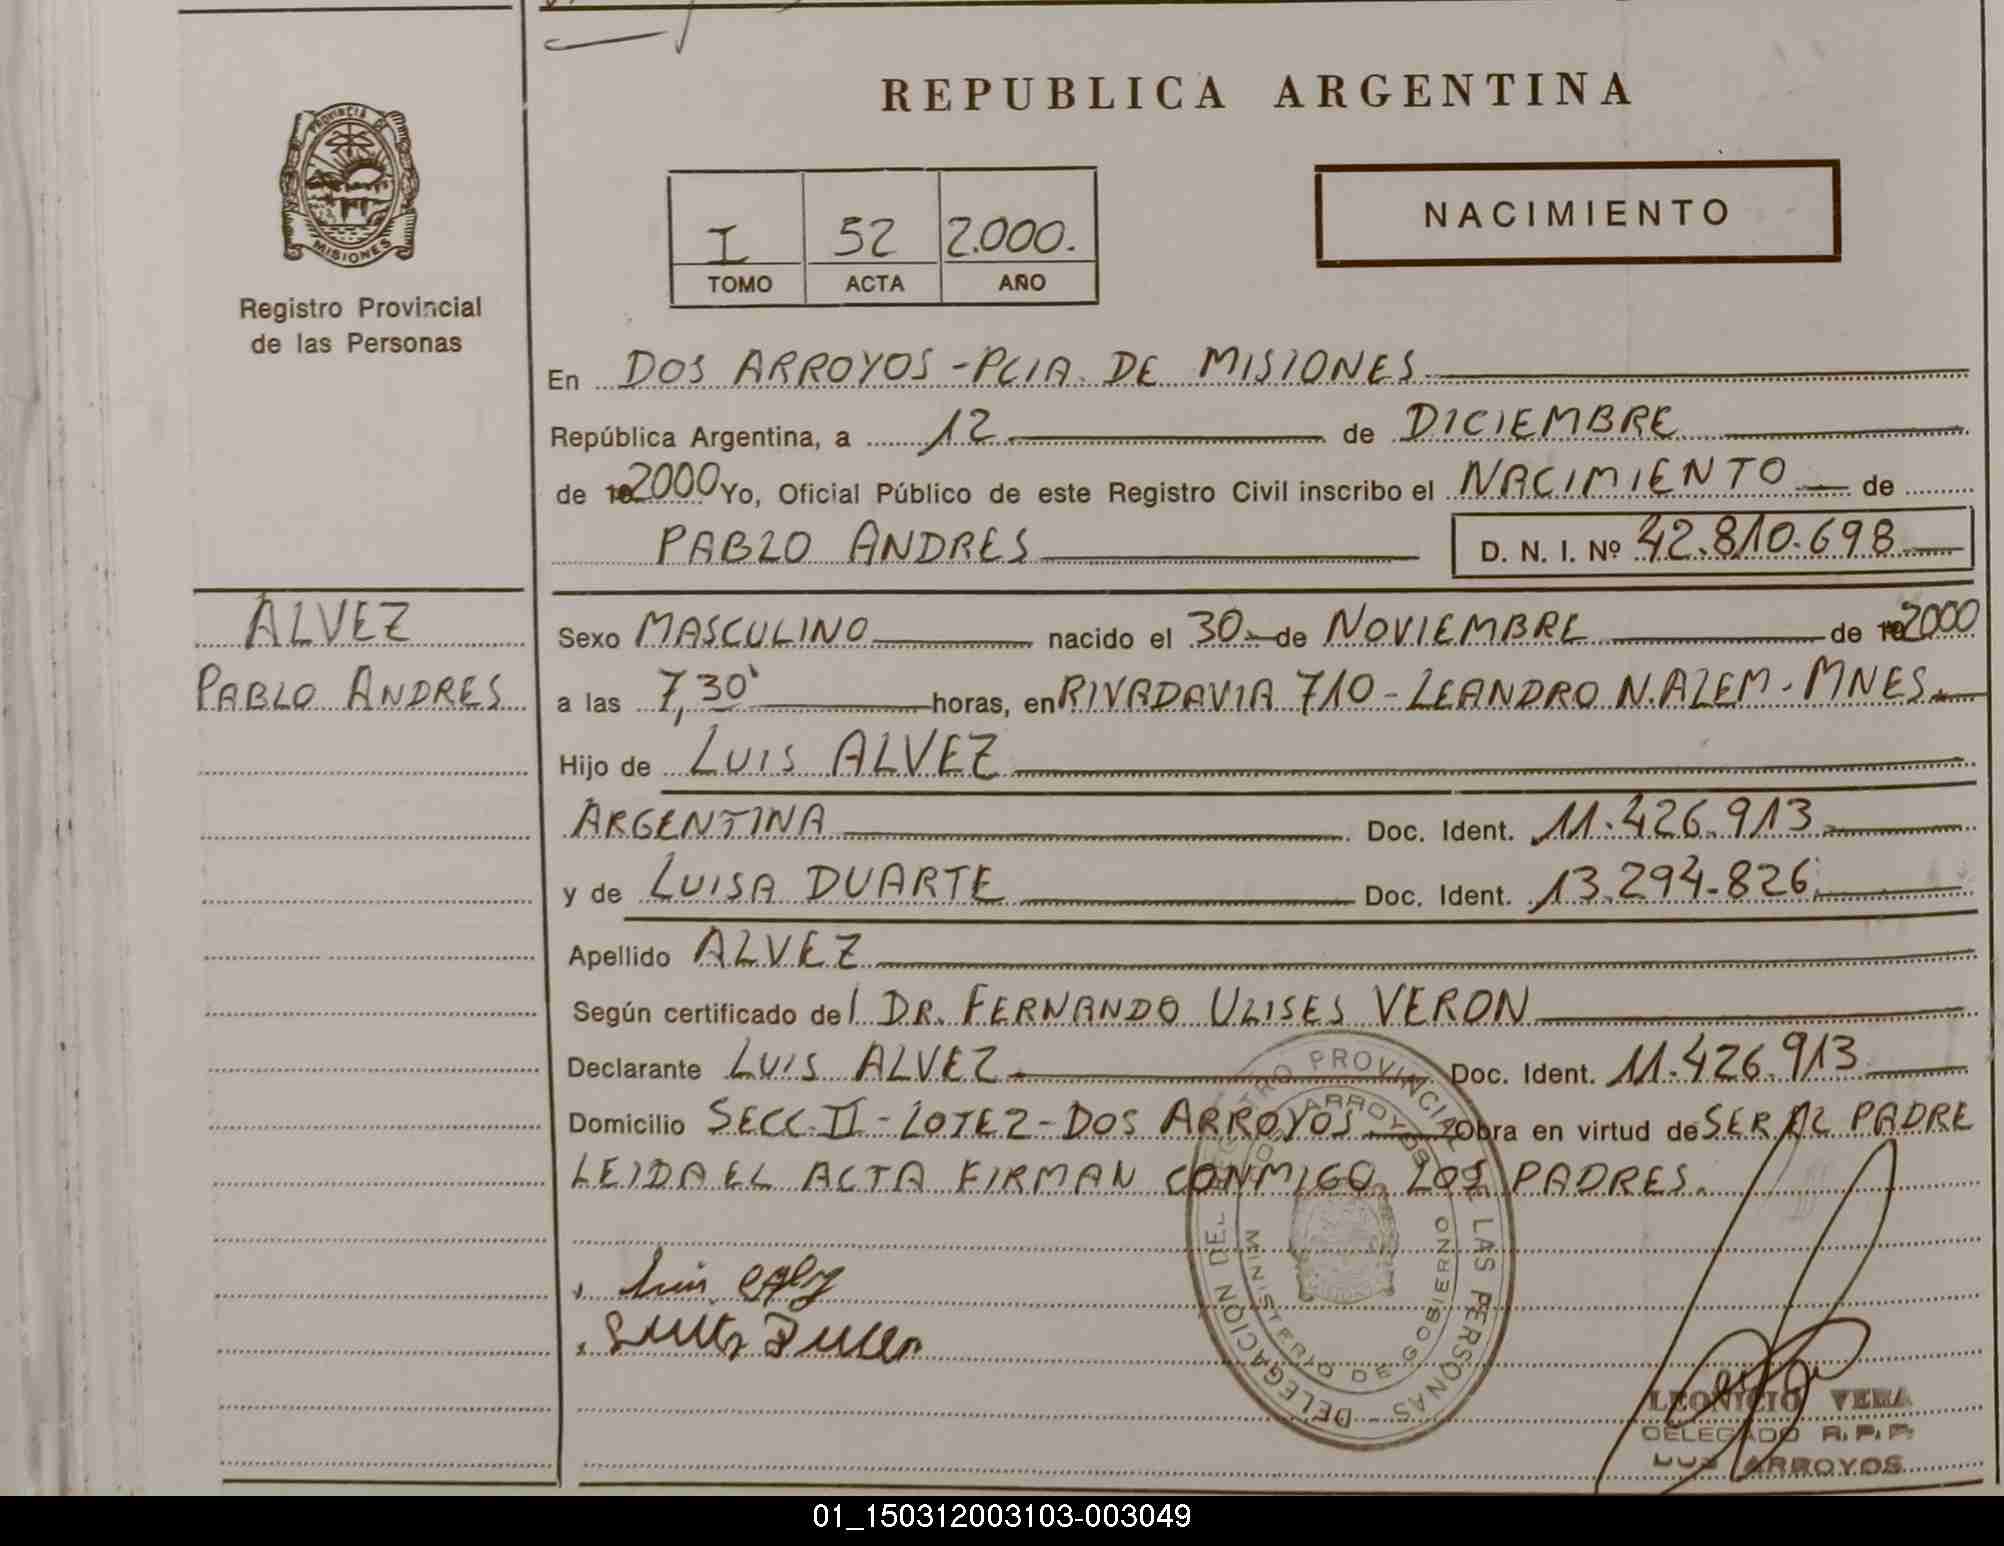 PROVINCIA DE
MISIONES
Registro Provincial
de las Personas
REPUBLICA ARGENTINA
I 52 2.000.
TOMO ACTA AÑO
NACIMIENTO
En DOS ARROYOS - PCIA. DE MISIONES
República Argentina, a 12 de DICIEMBRE
de 2000 Yo, Oficial Público de este Registro Civil inscribo el NACIMIENTO de
PABLO ANDRES D. N. I. Nº 42.810.698
ALVEZ
PABLO ANDRES
Sexo MASCULINO nacido el 30 de NOVIEMBRE de 2000
a las 7,30' horas, en RIVADAVIA 710 - LEANDRO N. ALEM - MNES.
Hijo de LUIS ALVEZ
ARGENTINA Doc. Ident. 11.426.913
y de LUISA DUARTE Doc. Ident. 13.294.826
Apellido ALVEZ
Según certificado del DR. FERNANDO ULISES VERON
Declarante LUIS ALVEZ Doc. Ident. 11.426.913
Domicilio SECC. II - LOTE 2 - DOS ARROYOS Obra en virtud de SER EL PADRE
LEIDA EL ACTA FIRMAN CONMIGO LOS PADRES.
DELEGACION DEL REGISTRO PROVINCIAL DE LAS PERSONAS
DOS ARROYOS
MINISTERIO DE GOBIERNO
LEONICIO VERA
DELEGADO R.P.P.
DOS ARROYOS
01_150312003103-003049